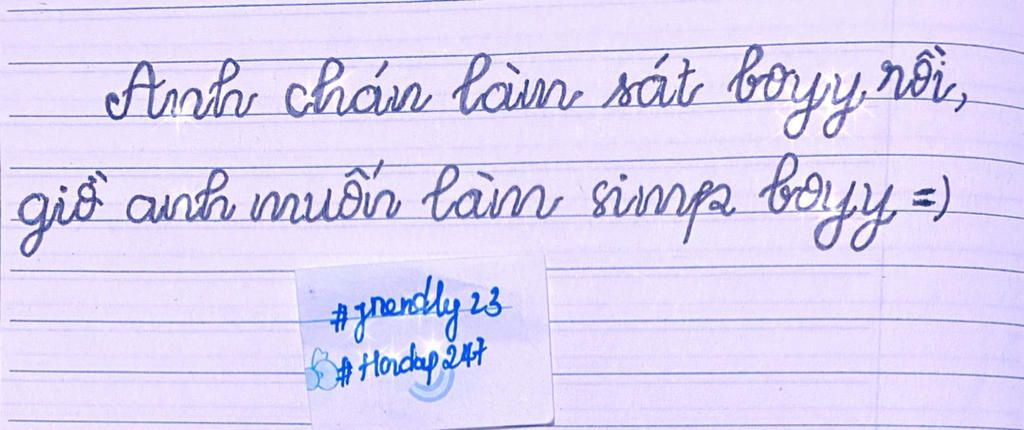 Anh chán làm sát boyy rồi,
giờ anh muốn làm simp boyy =)
#friendly23
#Hoidap247